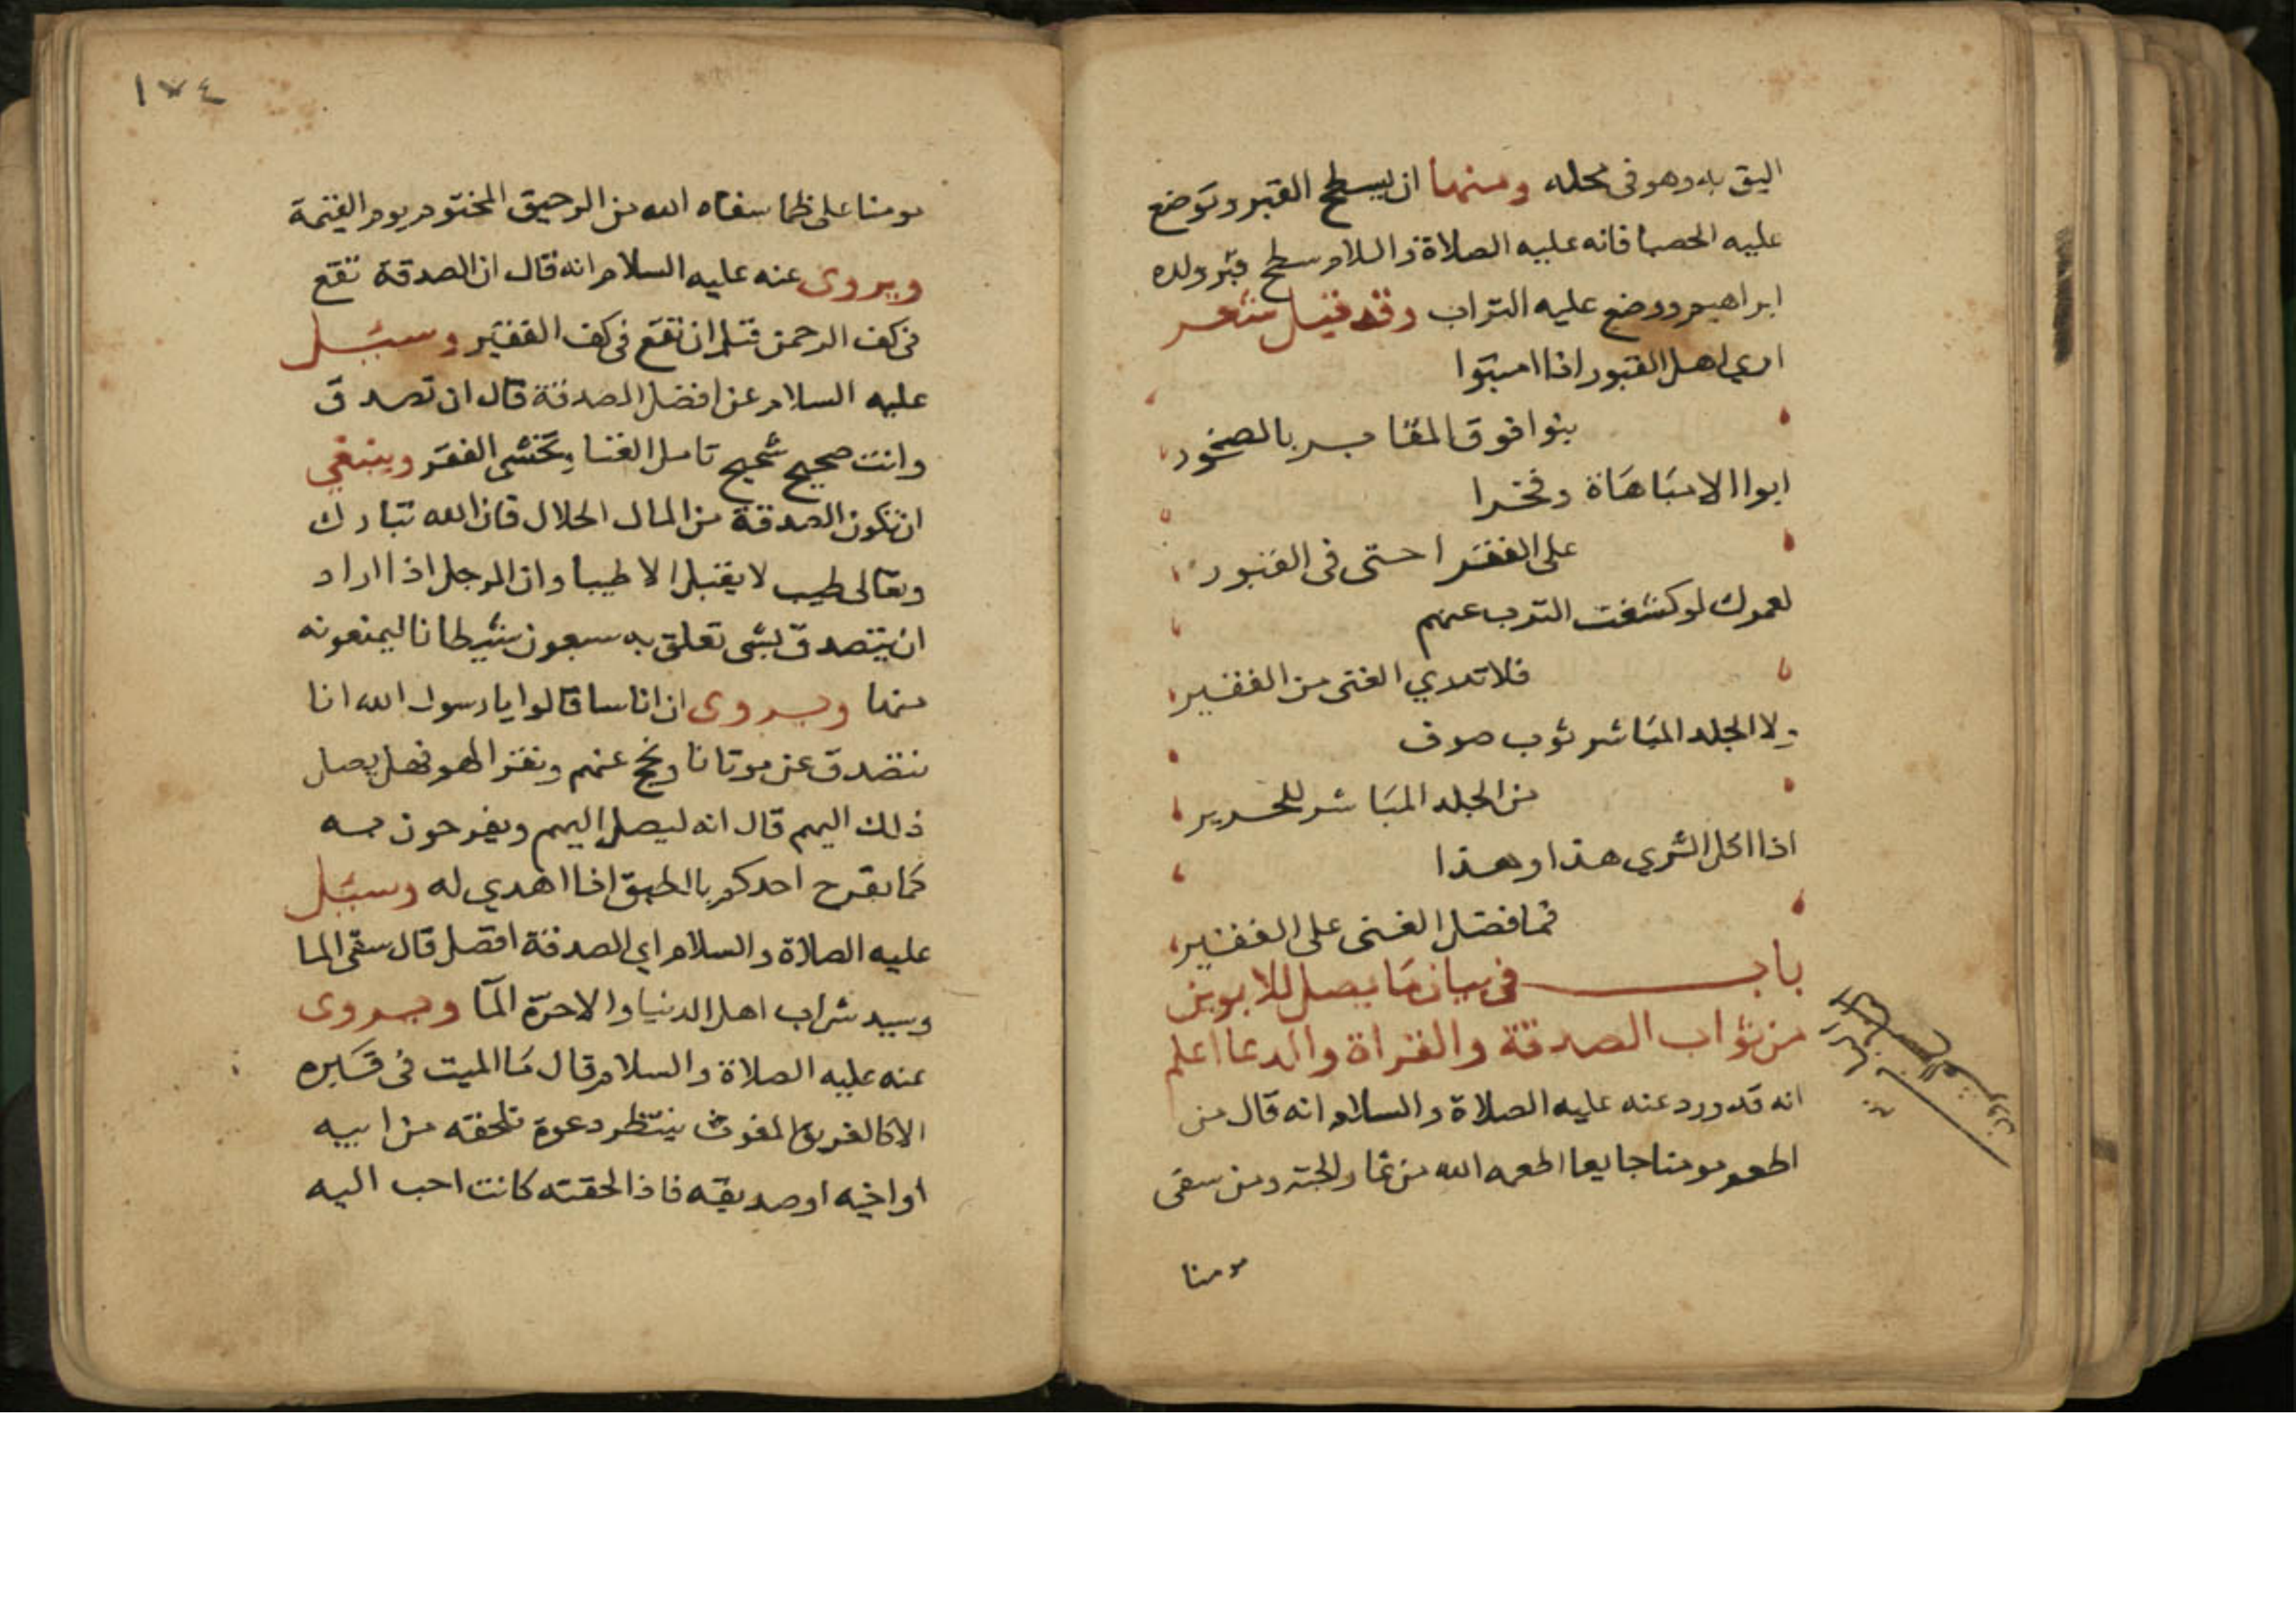 اليق به وهو في محله ومنها ان يسطح القبر وتوضع
عليه الحصبا فانه عليه الصلاة والسلام سطح قبر ولده
ابراهيم ووضع عليه التراب وقد قيل شعر
اري اهل القبور اذا امیتوا
بنوا فوق المقابر بالصخور
ابوا الا مباهاة وفخرا
على الفقرا حتى في القبور
لعمرك لو كشفت الترب عنهم
فلا تدري الغنى من الفقير
ولا الجلد المباشر ثوب صوف
من الجلد المباشر للحرير
اذا اكل الثري هذا وهذا
فما فضل الغنى على الفقير
باب في بيان ما يصل للابوين
من ثواب الصدقة والقراة والدعا اعلم
انه قد ورد عنه عليه الصلاة والسلام انه قال من
اطعم مومنا جايعا اطعمه الله من ثمار الجنة ومن سقى
مومنا
١٧٤
مومنا على ظما سقاه الله من الرحيق المختوم يوم القيمة
ويروى عنه عليه السلام انه قال ان الصدقة تقع
في كف الرحمن قبل ان تقع في كف الفقير وسئل
عليه السلام عن افضل الصدقة قال ان تصدق
وانت صحيح شحيح تامل الغنا وتخشى الفقر وينبغي
ان تكون الصدقة من المال الحلال فان الله تبارك
وتعالى طيب لا يقبل الا طيبا وان الرجل اذا اراد
ان يتصدق بشي تعلق به سبعون شيطانا ليمنعونه
منها ويروى ان اناسا قالوا يا رسول الله انا
نتصدق عن موتانا ونحج عنهم ونقرا لهم فهل يصل
ذلك اليهم قال انه ليصل اليهم ويفرحون به
كما يفرح احدكم بالطبق اذا اهدي له وسئل
عليه الصلاة والسلام اي الصدقة افضل قال سقى الما
وسيد شراب اهل الدنيا والاخرة المآ ويروى
عنه عليه الصلاة والسلام قال ما الميت في قبره
الا كالغريق المغوث ينتظر دعوة تلحقه من ابيه
او اخيه او صديقه فاذا لحقته كانت احب اليه